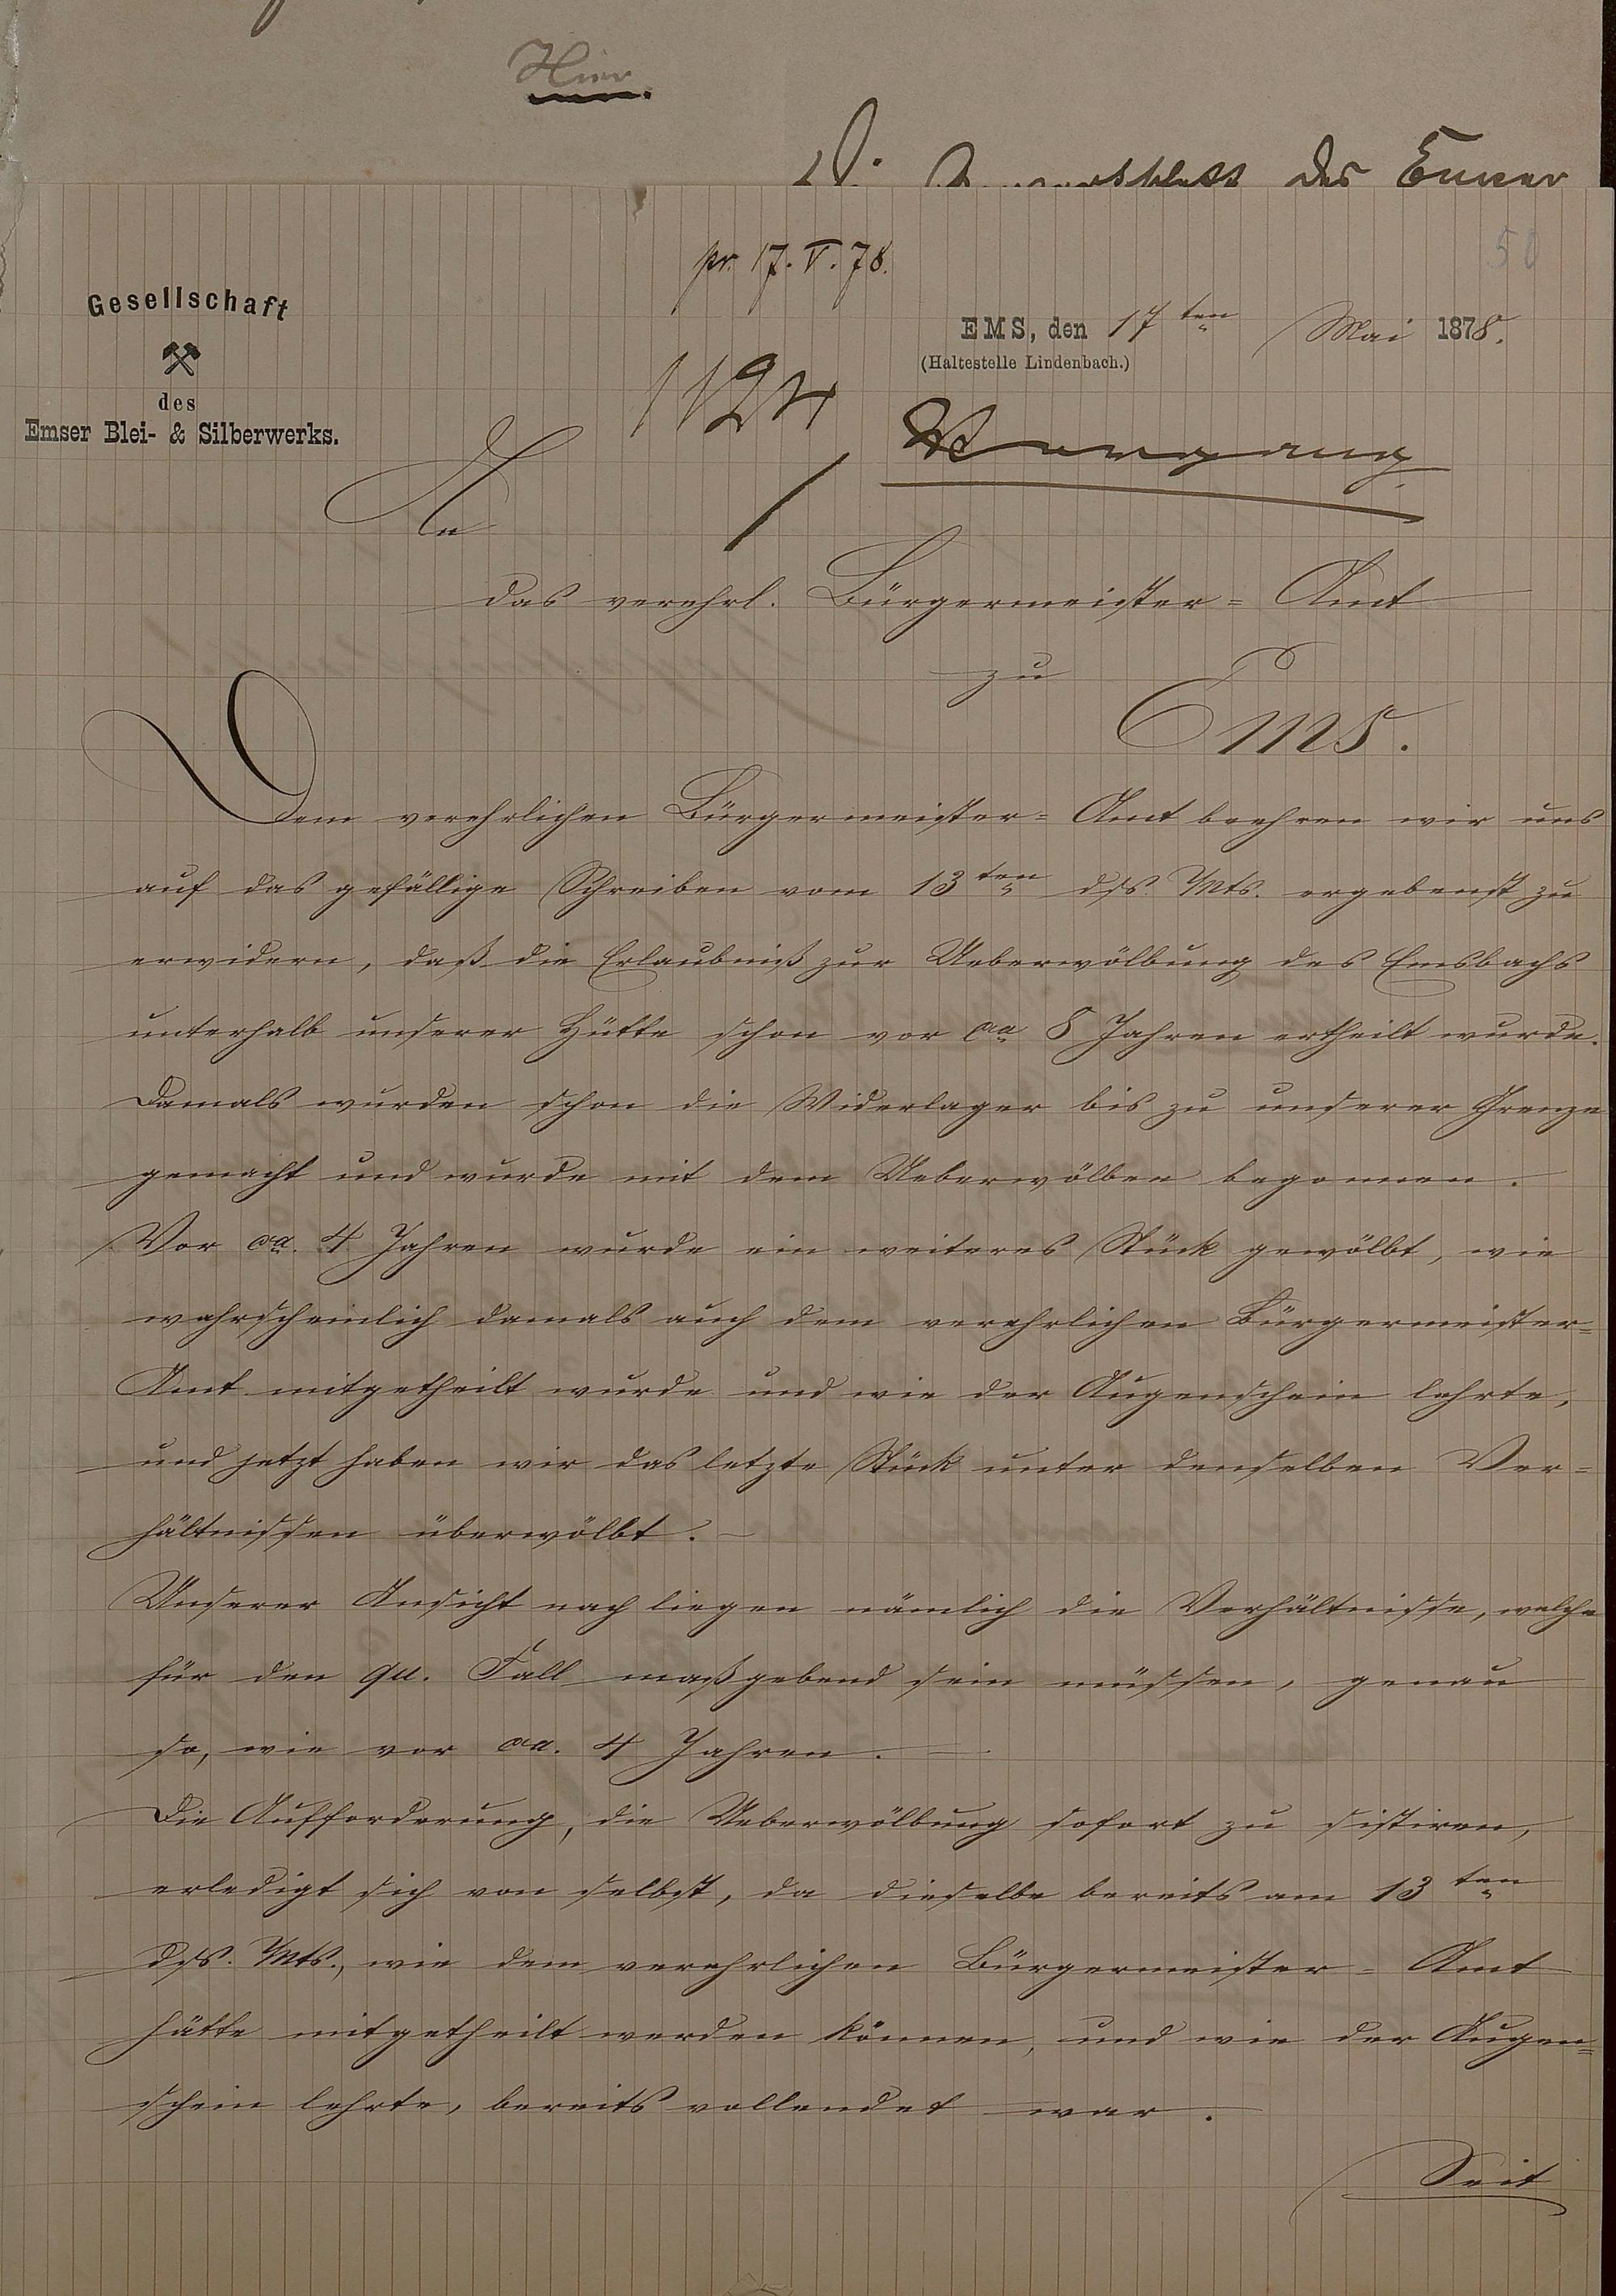 Hier.
des Emser
50
pr. 17. V. 78.
Gesellschaft
des
Emser Blei- & Silberwerks.
EMS, den 17ten Mai 1878.
(Haltestelle Lindenbach.)
1124
Vorgang
An
das verehrl. Bürgermeister= Amt
zu
Ems.
Dem verehrlichen Bürgermeister= Amt beehren wir uns
auf das gefällige Schreiben vom 13ten dss. Mts. ergebenst zu
erwidern, daß die Erlaubniß zur Ueberwölbung des Emsbachs
unterhalb unserer Hütte schon vor ca 8 Jahren ertheilt wurde.
Damals wurden schon die Widerlager bis zu unserer Grenze
gemacht und wurde mit dem Ueberwölben begonnen.
Vor ca. 4 Jahren wurde ein weiteres Stück gewölbt, wie
wahrscheinlich damals auch dem verehrlichen Bürgermeister=
Amt mitgetheilt wurde und wie der Augenschein lehrte,
und jetzt haben wir das letzte Stück unter denselben Ver=
hältnissen überwölbt. —
Unserer Ansicht nach liegen nämlich die Verhältnisse, welche
für den qu. Fall maßgebend sein müssen, genau
so, wie vor ca. 4 Jahren. —
Die Aufforderung, die Ueberwölbung sofort zu sistiren,
erledigt sich von selbst, da dieselbe bereits am 13ten
dss. Mts., wie dem verehrlichen Bürgermeister= Amt
hätte mitgetheilt werden können, und wie der Augen=
schein lehrte, bereits vollendet war.
Seit